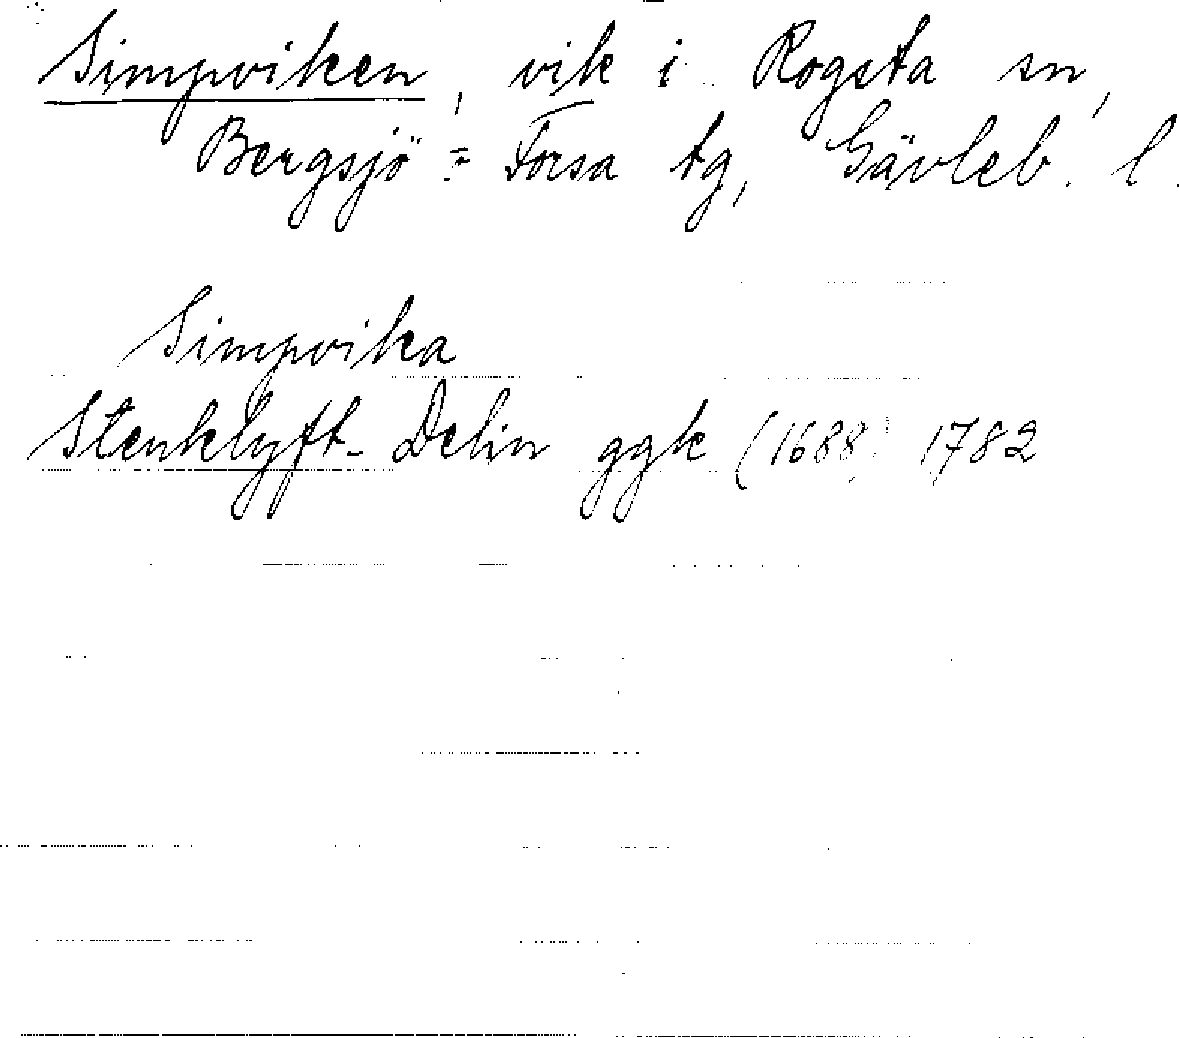 Simpviken, vik i Rogsta sn,
Bergsjö = Forsa tg, Gävleb. l.
Simpvika
Stenklyft- Delin ggk (1688, 1782